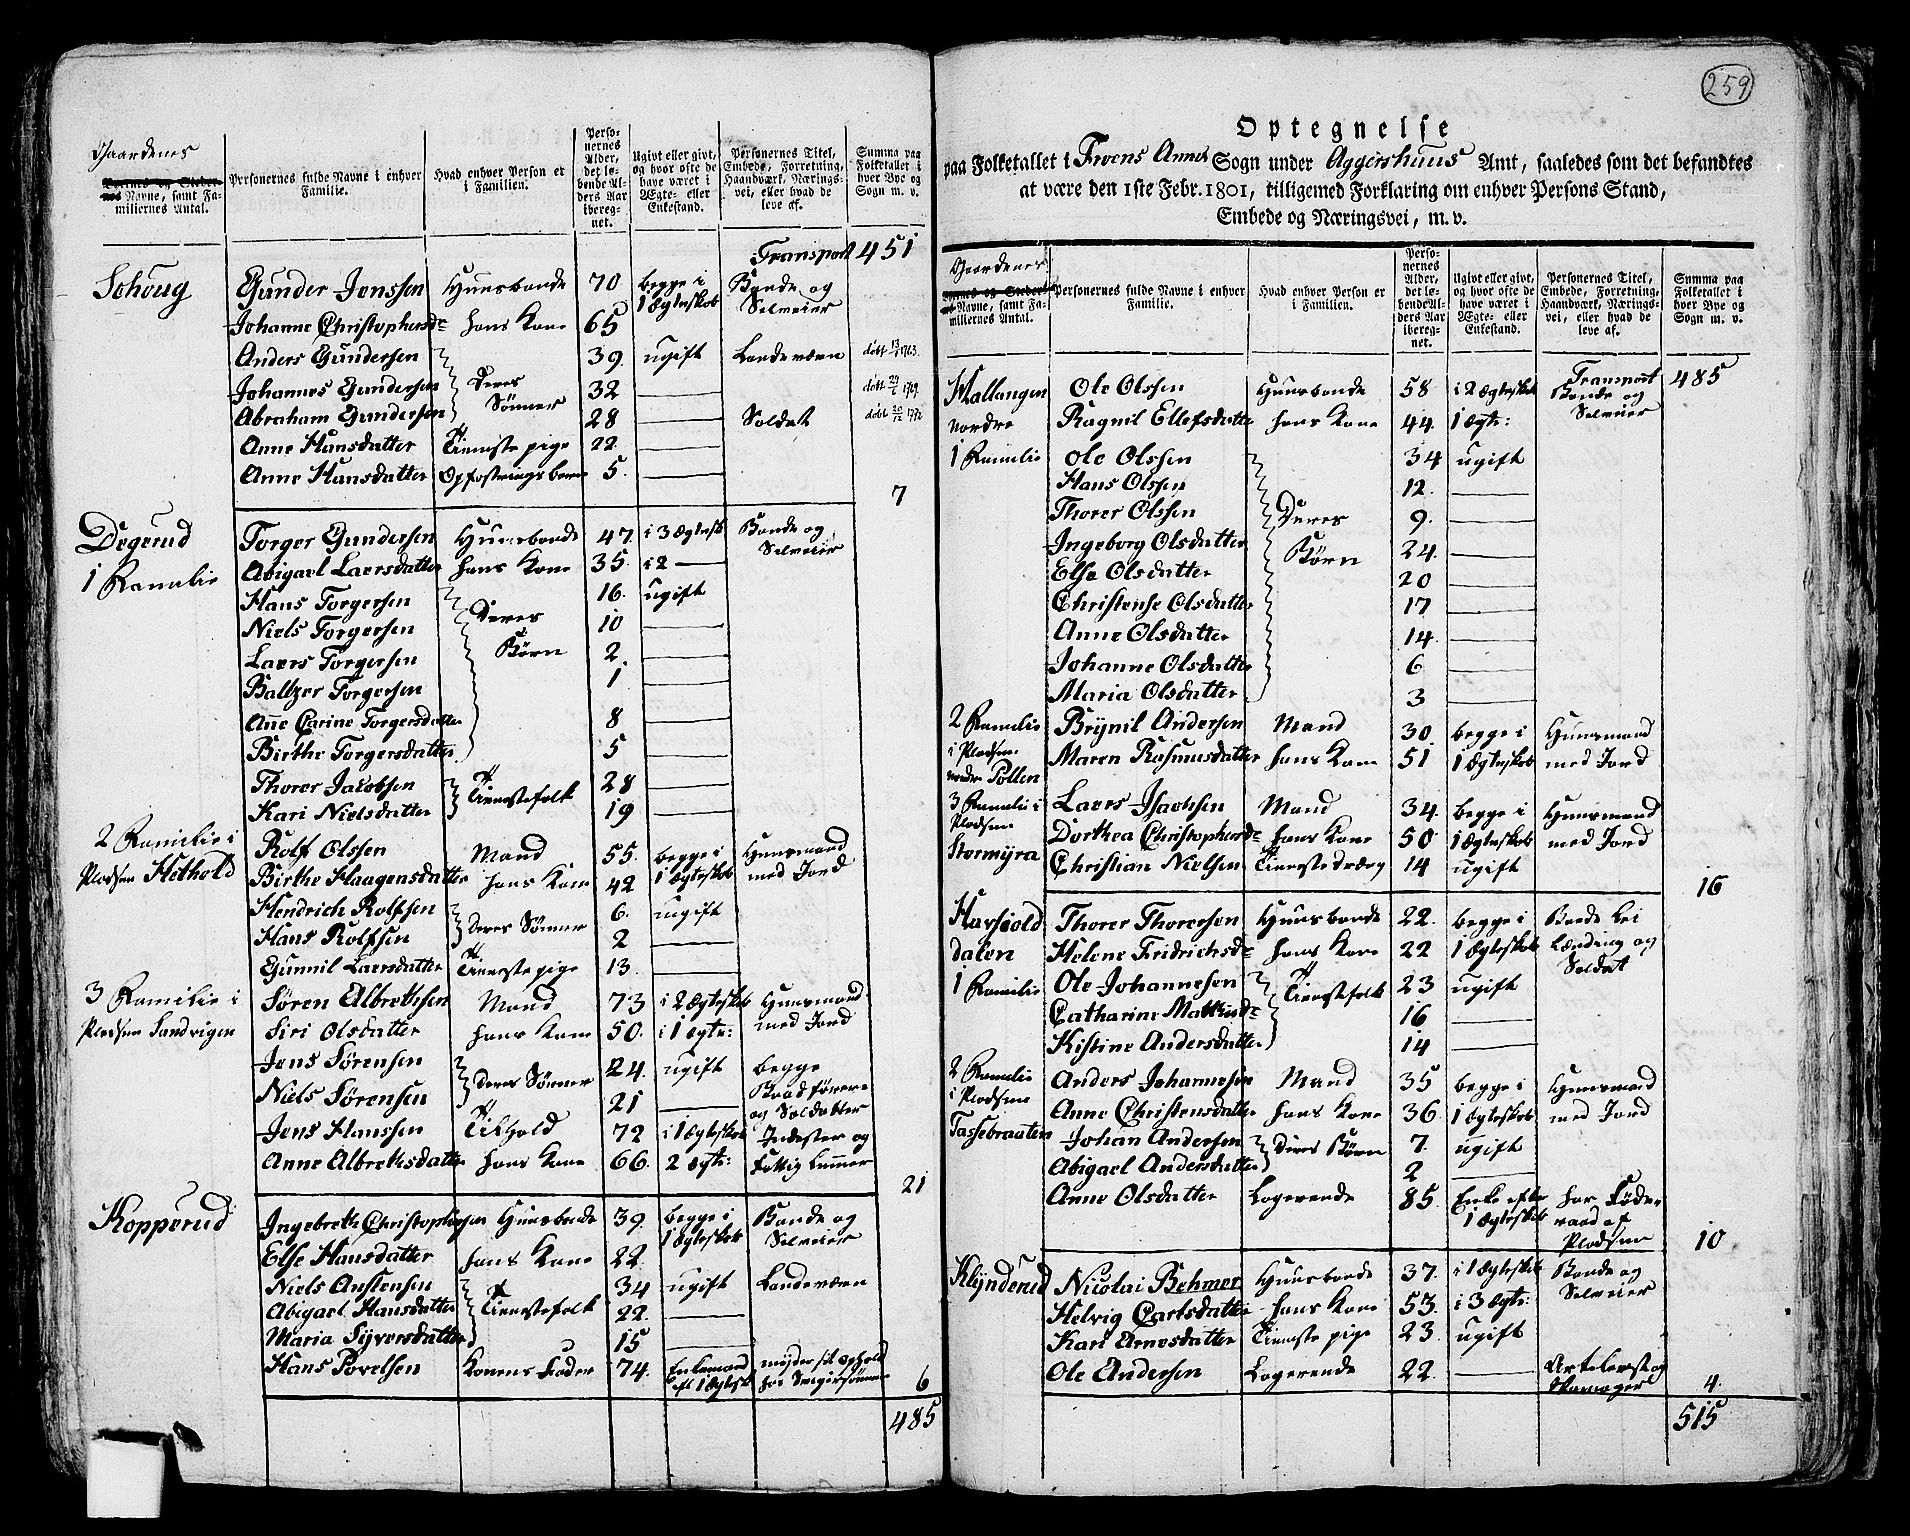 259
Gaardenes
Byernes og Stedernes Navne, samt Familiernes Antal.
Personernes fulde Navne i enhver Familie.
Hvad enhver Person er i Familien.
Personernes Alder, det løbende Alders Aar iberegnet.
Ugivt eller givt, og hvor ofte de have været i Ægte- eller Enkestand.
Personernes Titel, Embede, Forretning, Haandværk, Næringsvei, eller hvad de leve af.
Summa paa Folketallet i hver Bye og Sogn m. v.
Transport 451
Schoug Gunder Jenssen Huusbonde 70 begge i 1 Ægteskab Bonde og Selveier
Johanne Christophersd: hans Kone 65
Anders Gundersen 39. ugift Landeværn døbt 13/ 1763.
Johannes Gundersen Deres Sønner 32 døbt 1769.
Abraham Gundersen 28 Soldat døbt 20/12 1772
Anne Hansdatter Tieneste pige 22.
Anne Hansdatter Opfostrings barn 5.
7
Degerud Torger Gundersen Huusbonde 47. i 3 Ægtesk Bonde og Selveier
1 Familie Abigael Laersdatter hans Kone 35. i 2
Hans Torgersen 16. ugift
Niels Torgersen Deres 10
Laers Torgersen Børn 2.
Baltzer Torgersen 1
Añe Carine Torgersdatter 8
Birthe Torgersdatter 5
Thorer Jacobsen Tienestefolk 28
Kari Nielsdatter 19
2 Familie i Rolf Olssen Mand 55. begge i Huusmand
Pladsen Hethold Birthe Haagensdatter hans Kone 42 1 Ægteskab med Jord
Hendrich Rolfsen Deres Sønner 6. ugift
Hans Rolfsen 2
Gunnil Laersdatter Tieneste pige 13.
3 Familie i Søren Albrethsen Mand 73 i 2 Ægteskab Huusmand
Pladsen Sandvigen Siri Olsdatter hans Kone 50. i 1 Ægte: med Jord
Jens Sørensen Deres Sønner 24. ugift begge
Niels Sørensen 21 og Soldatter
Jens Hanssen 72 i 1 Ægteskab Inderster og
Anne Albrethsdatter hans Kone 66. 2 Ægte: Fattig Lemmer
21
Kopperud Ingebreth Christophersen Huusbonde 39. begge i 1 Ægteskab Bonde og Selveier
Else Hansdatter hans Kone 22.
Niels Anstensen Tienestefolk 34 ugift Landeværn
Abigael Hansdatter 22.
Maria Syversdatter 15
Hans Povelsen Konens Fader 74. Enkemand eft 1 Ægtesk nyder sit ophold hos Svigersønnen 6
485
Optegnelse
paa Folketallet i Froens Annex Sogn under Aggershuus Amt, saaledes som det befandtes
at være den 1ste Febr. 1801, tilligemed Forklaring om enhver Persons Stand,
Embede og Næringsvei, m. v.
Gaardenes
Byernes og Stedernes Navne, samt Familiernes Antal.
Personernes fulde Navne i enhver Familie.
Hvad enhver Person er i Familien.
Personernes Alder, det løbende Alders Aar iberegnet.
Ugivt eller givt, og hvor ofte de have været i Ægte- eller Enkestand.
Personernes Titel, Embede, Forretning, Haandværk, Næringsvei, eller hvad de leve af.
Summa paa Folketallet i hver Bye og Sogn m. v.
Transport 485
Hallangen Ole Olssen Huusbonde 58 i 2 Ægteskab Bonde og Selveier
nordre Ragnil Ellefsdatter hans Kone 44. 1 Ægte:
1 Familie Ole Olssen 34 ugift
Hans Olssen 12.
Thorer Olssen Deres 9.
Ingeborg Olsdatter Børn 24.
Else Olsdatter 20
Christense Olsdatter 17
Anne Olsdatter 14.
Johanne Olsdatter 6
Maria Olsdatter 3
2 Familie Brynil Andersen Mand 30 begge i Huusmand
i Pladsen Maren Rasmusdatter hans Kone 51 1 Ægteskab med Jord
nordre Pollen
3 Familie i Laers Isachsen Mand 34. begge i Huusmand
Pladsen Dorthea Christophersd: hans Kone 50 1 Ægteskab med Jord
Stormÿra Christian Nielsen Tieneste dreng 14 ugift
16
Havsiold Thorer Thorersen Huusbonde 22. begge i Bonde Lei
dalen Helene Fridrichsd: hans Kone 22 1 Ægteskab Lænding og Soldat
1 Familie Ole Johannesen Tienestefolk 23 ugift
Catharine Mathisd: 16
Kistine Andersdatter 14
2 Familie Anders Johannesen Mand 35 begge i Huusmand
i Pladsen Anne Christensdatter hans Kone 36. 1 Ægteskab med Jord
Tassebraaten Johan Andersen Deres Børn 7. ugift
Abigael Andersdatter 2
Anne Olsdatter Logerende 85. Enke efter 1 Ægteskab har Føderaad af Pladsen
10
Klÿnderud Nicolai Behmer Huusbonde 37. i 1 Ægteskab Bonde og Selveier
Helvig Carlsdatter hans Kone 53. i 3 Ægte:
Kari Arnesdatter Tieneste pige 23 ugift
Ole Andersen Logerende 22. og Skomager 4.
515